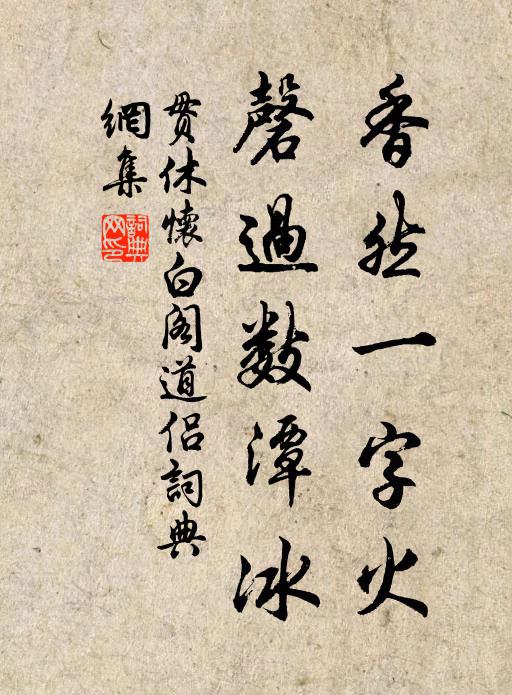 香然一字火
磬過數潭冰
貫休懷白閣道侶詞典
網集
詞典
网印